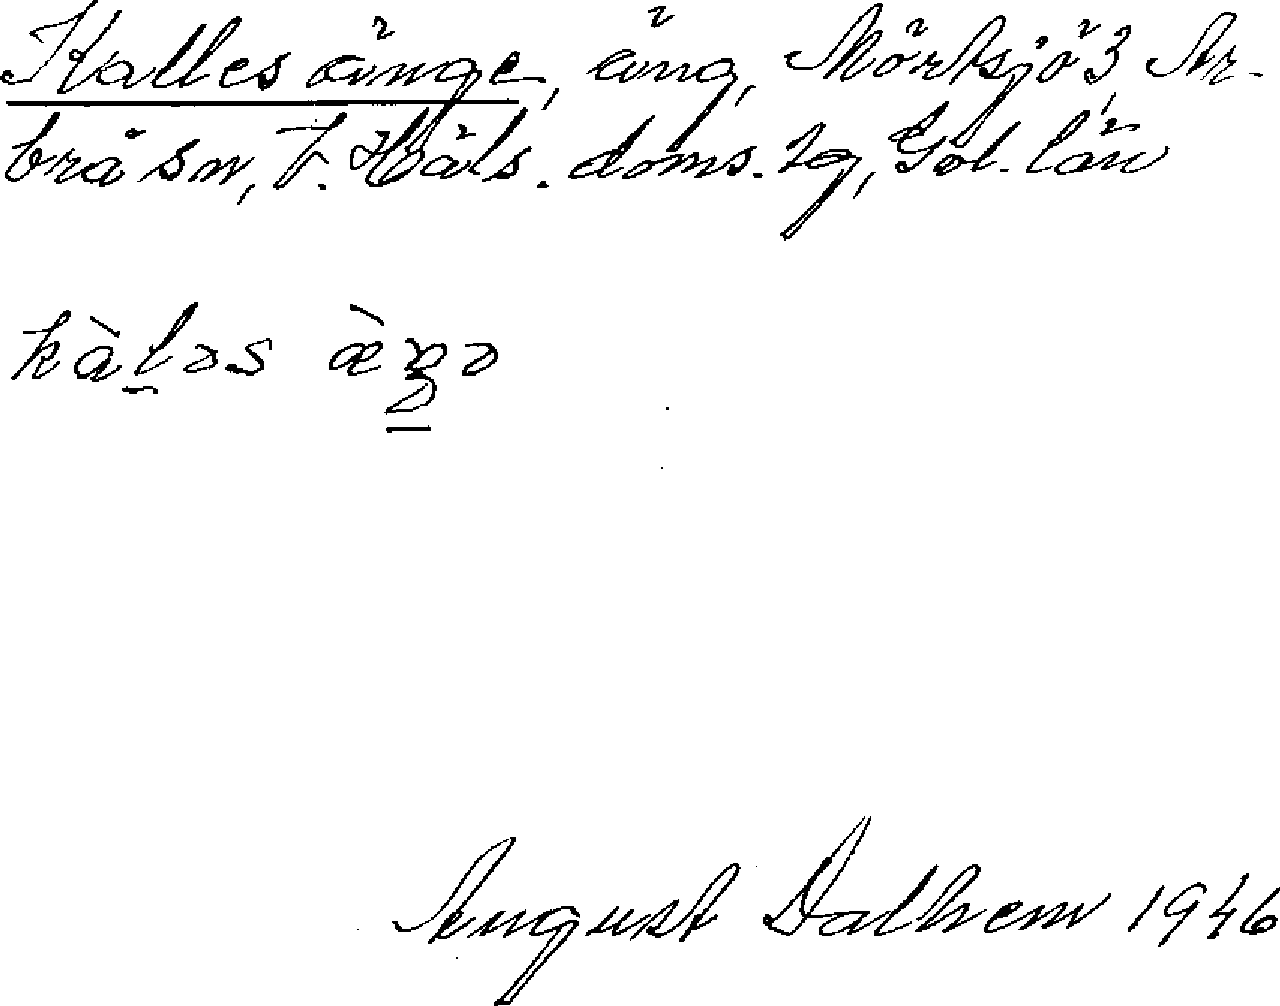 Kalles änge, äng, Mörtsjö 3, Ar-
brå sn, V. Häls. doms. tg, Gbl. län
kàləs æ̀ŋə
August Dalhem 1946